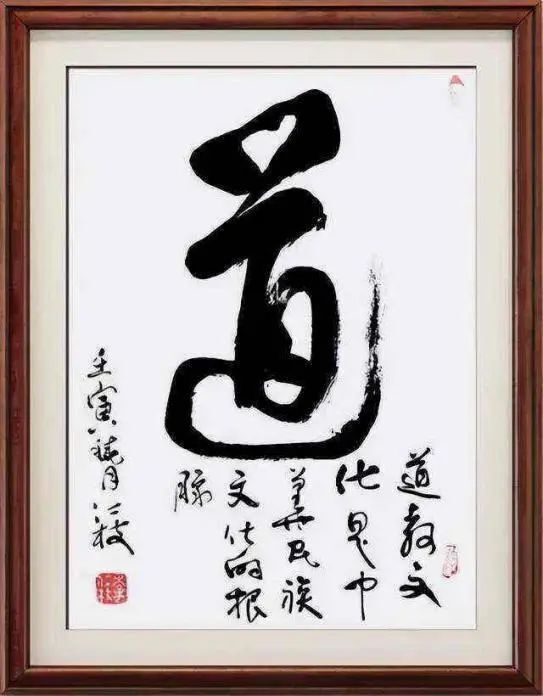 道
道教文
化是中
華民族
文化的根
脉
壬寅